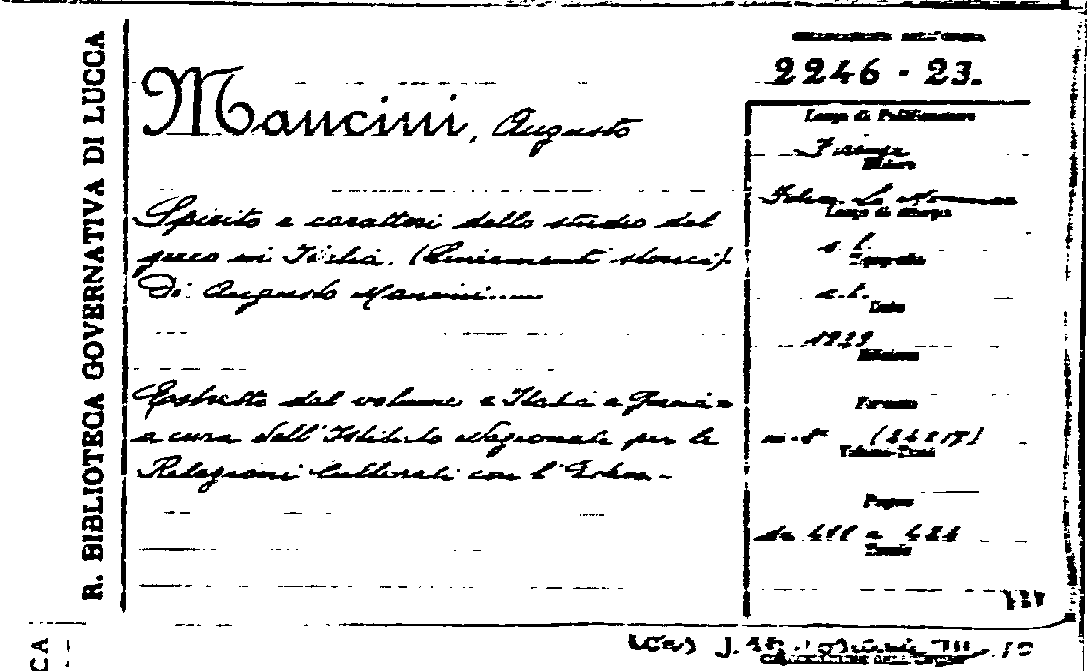 R. BIBLIOTECA GOVERNATIVA DI LUCCA
Mancini, Augusto
Spirito e caratteri dello studio del
greco in Italia. (Lineamenti storici).
Di Augusto Mancini.....
Estratto dal volume « Italia e Grecia »
a cura dell'Istituto Nazionale per le
Relazioni Culturali con l'Estero.-
COLLOCAZIONE DELL'OPERA
2246 - 23.
Luogo di Pubblicazione
Firenze
Editore
Felice Le Monnier
Luogo di stampa
s. l.
Tipografia
s. t.
Data
1939
Edizione
Formato
in-8° (24x17)
Volume-Tomi
Pagine
da 411 a
Tavole
CA